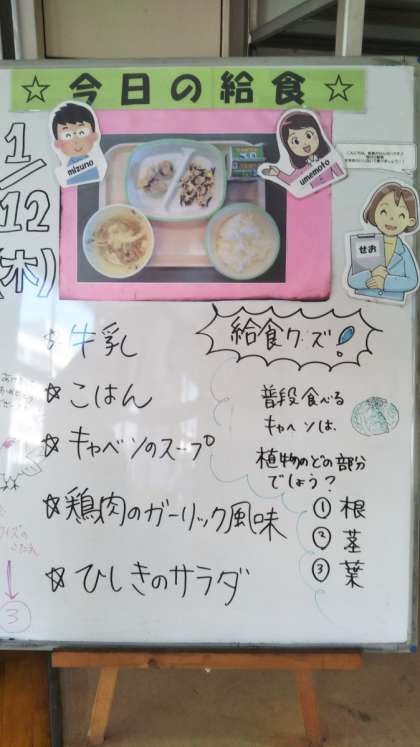 ☆今日の給食☆
1/12
(木)
mizuno
umemoto
せお
☆牛乳
☆ごはん
☆キャベツのスープ
☆鶏肉のガーリック風味
☆ひじきのサラダ
給食クイズ!
普段食べる
キャベツは、
植物のどの部分
でしょう？
① 根
② 茎
③ 葉
③